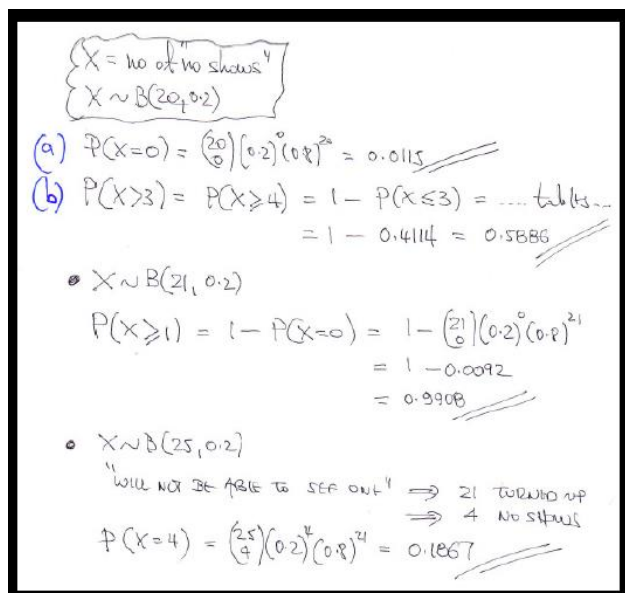 X = no of "no shows"
X ~ B(20, 0.2)
(a) P(X=0) = (20 0)(0.2)⁰(0.8)²⁰ = 0.0115
(b) P(X>3) = P(X⩾4) = 1 - P(X≤3) = .... tables...
= 1 - 0.4114 = 0.5886
• X ~ B(21, 0.2)
P(X⩾1) = 1 - P(X=0) = 1 - (21 0)(0.2)⁰(0.8)²¹
= 1 - 0.0092
= 0.9908
• X ~ B(25, 0.2)
"WILL NOT BE ABLE TO SEE ONE" ⇒ 21 TURNED UP
⇒ 4 NO SHOWS
P(X=4) = (25 4)(0.2)⁴(0.8)²¹ = 0.1867